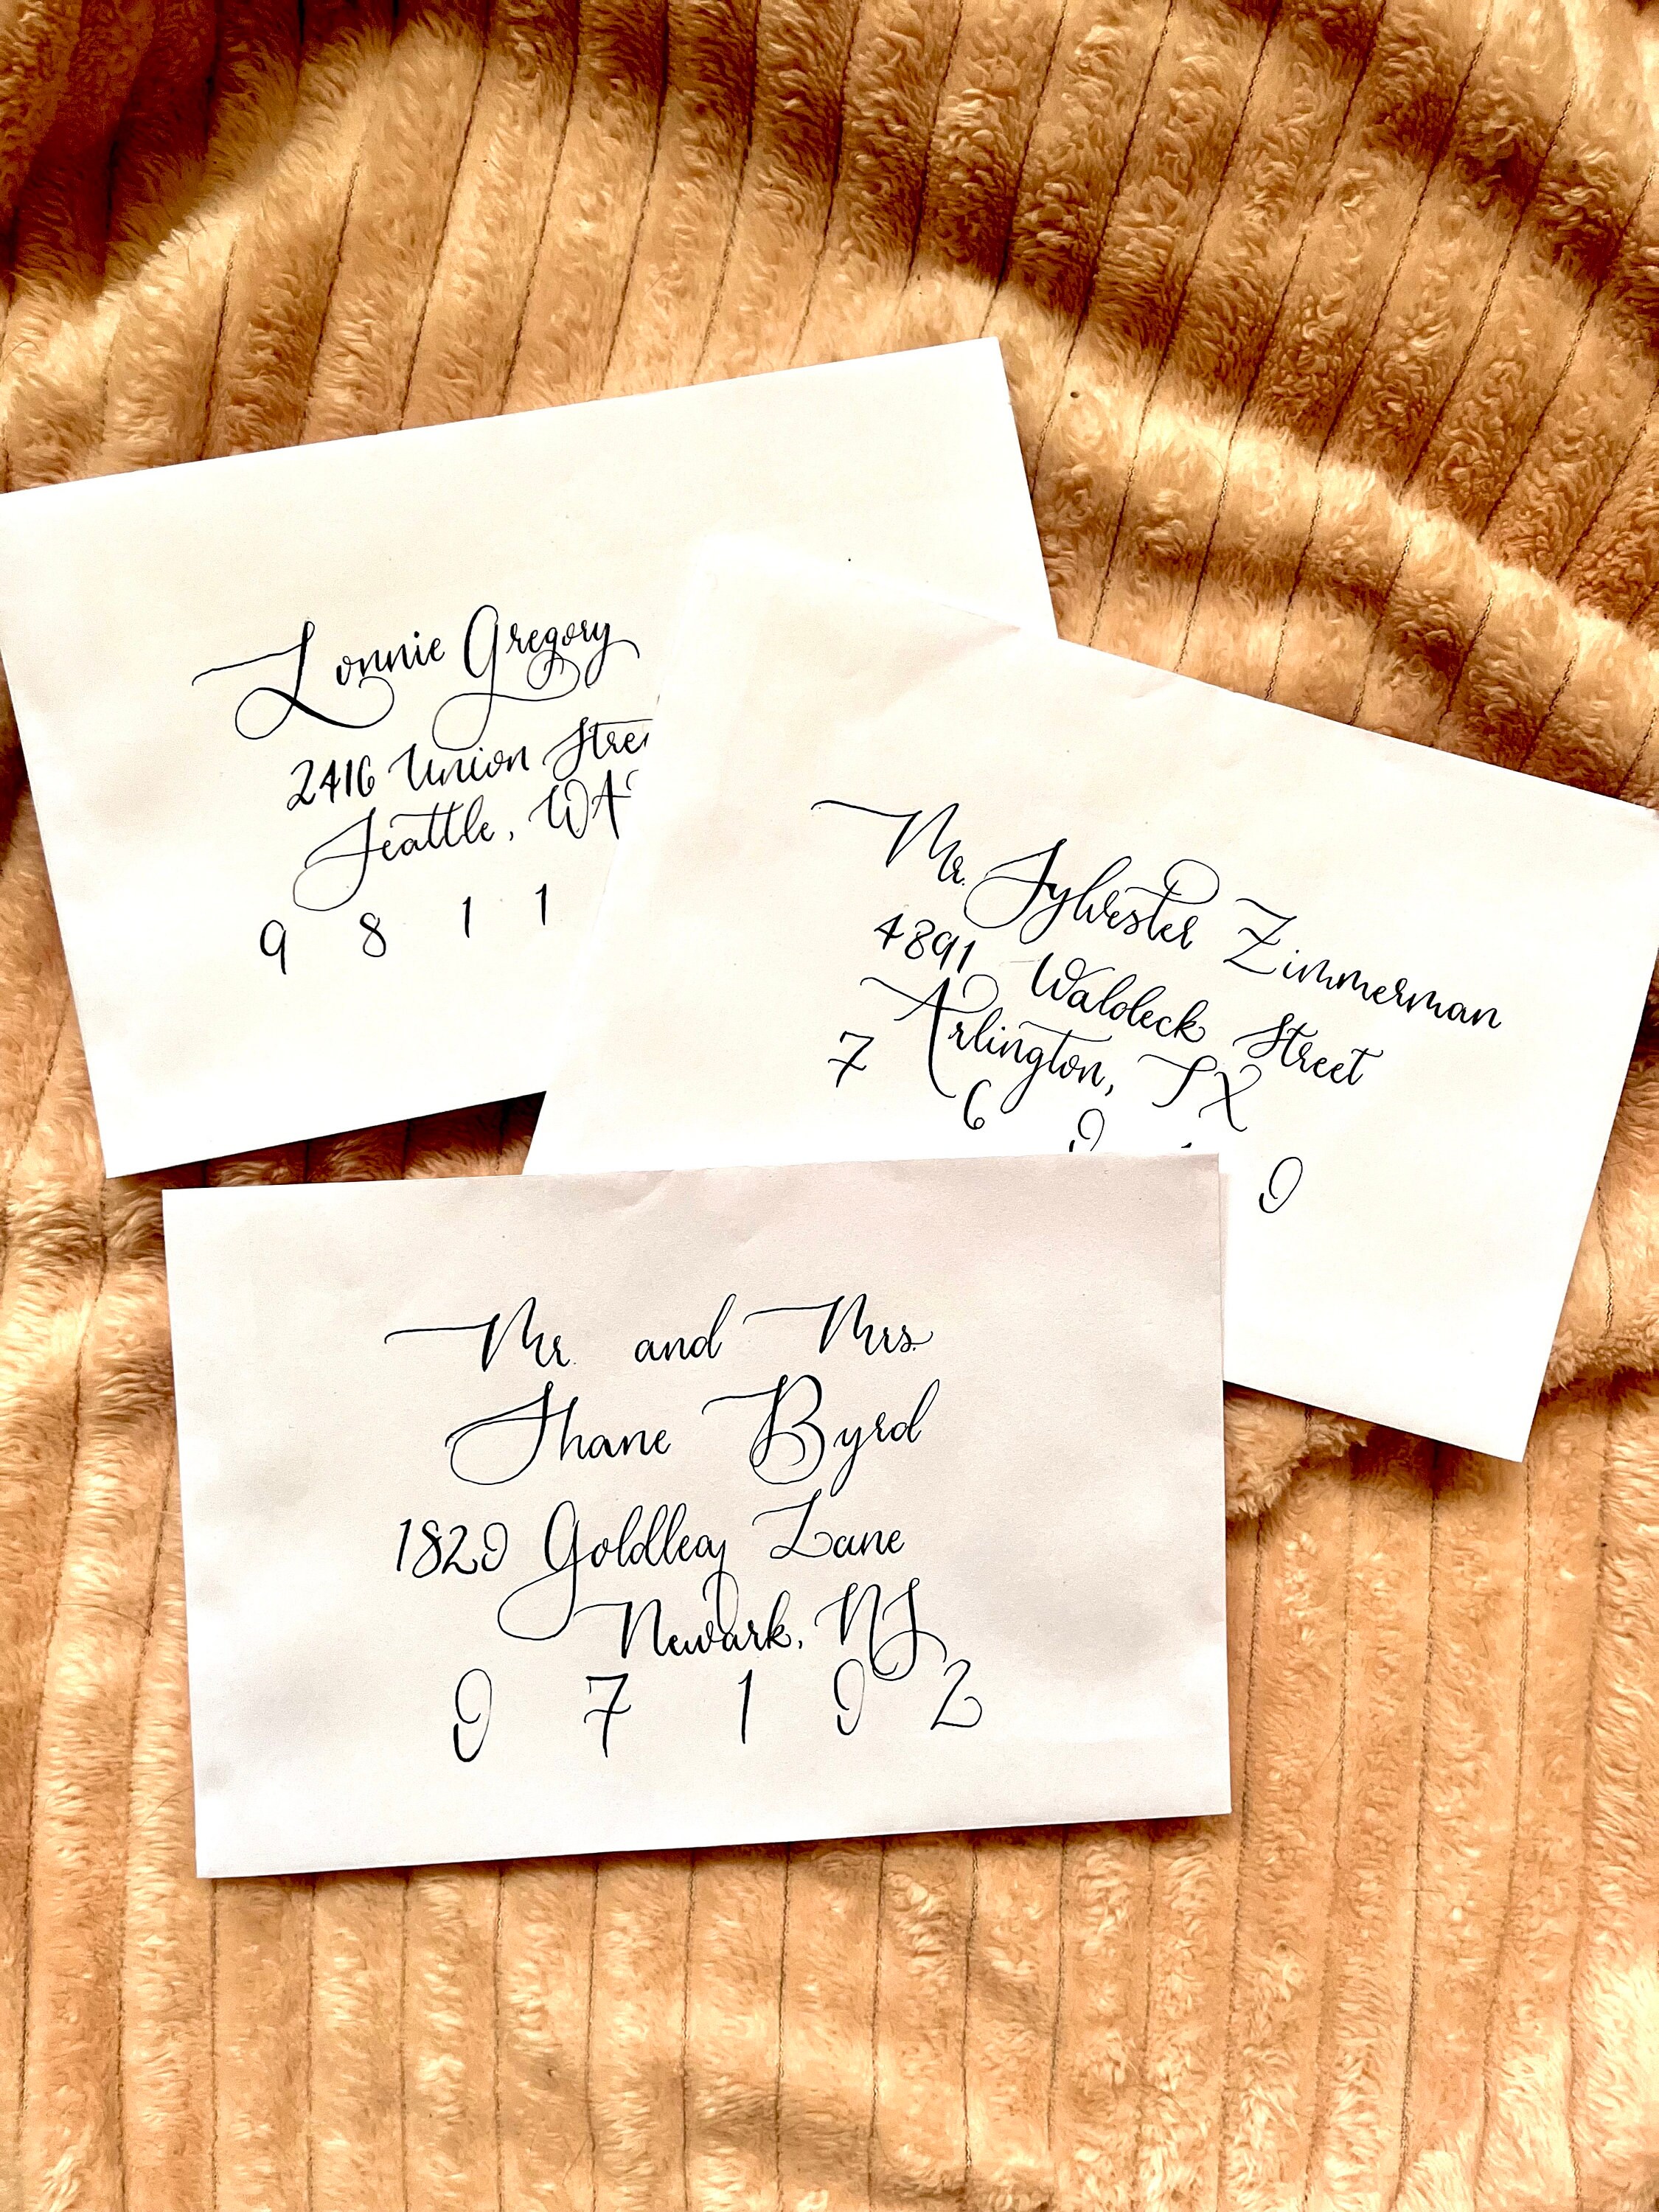 Lonnie Gregory
2416 Union Stree
Seattle, WA
9 8 1 1
Mr. Sylvester Zimmerman
4891 Waldeck Street
Arlington, TX
7 6 0
Mr. and Mrs.
Shane Byrd
1820 Goldleaf Lane
Newark, NJ
0 7 1 0 2